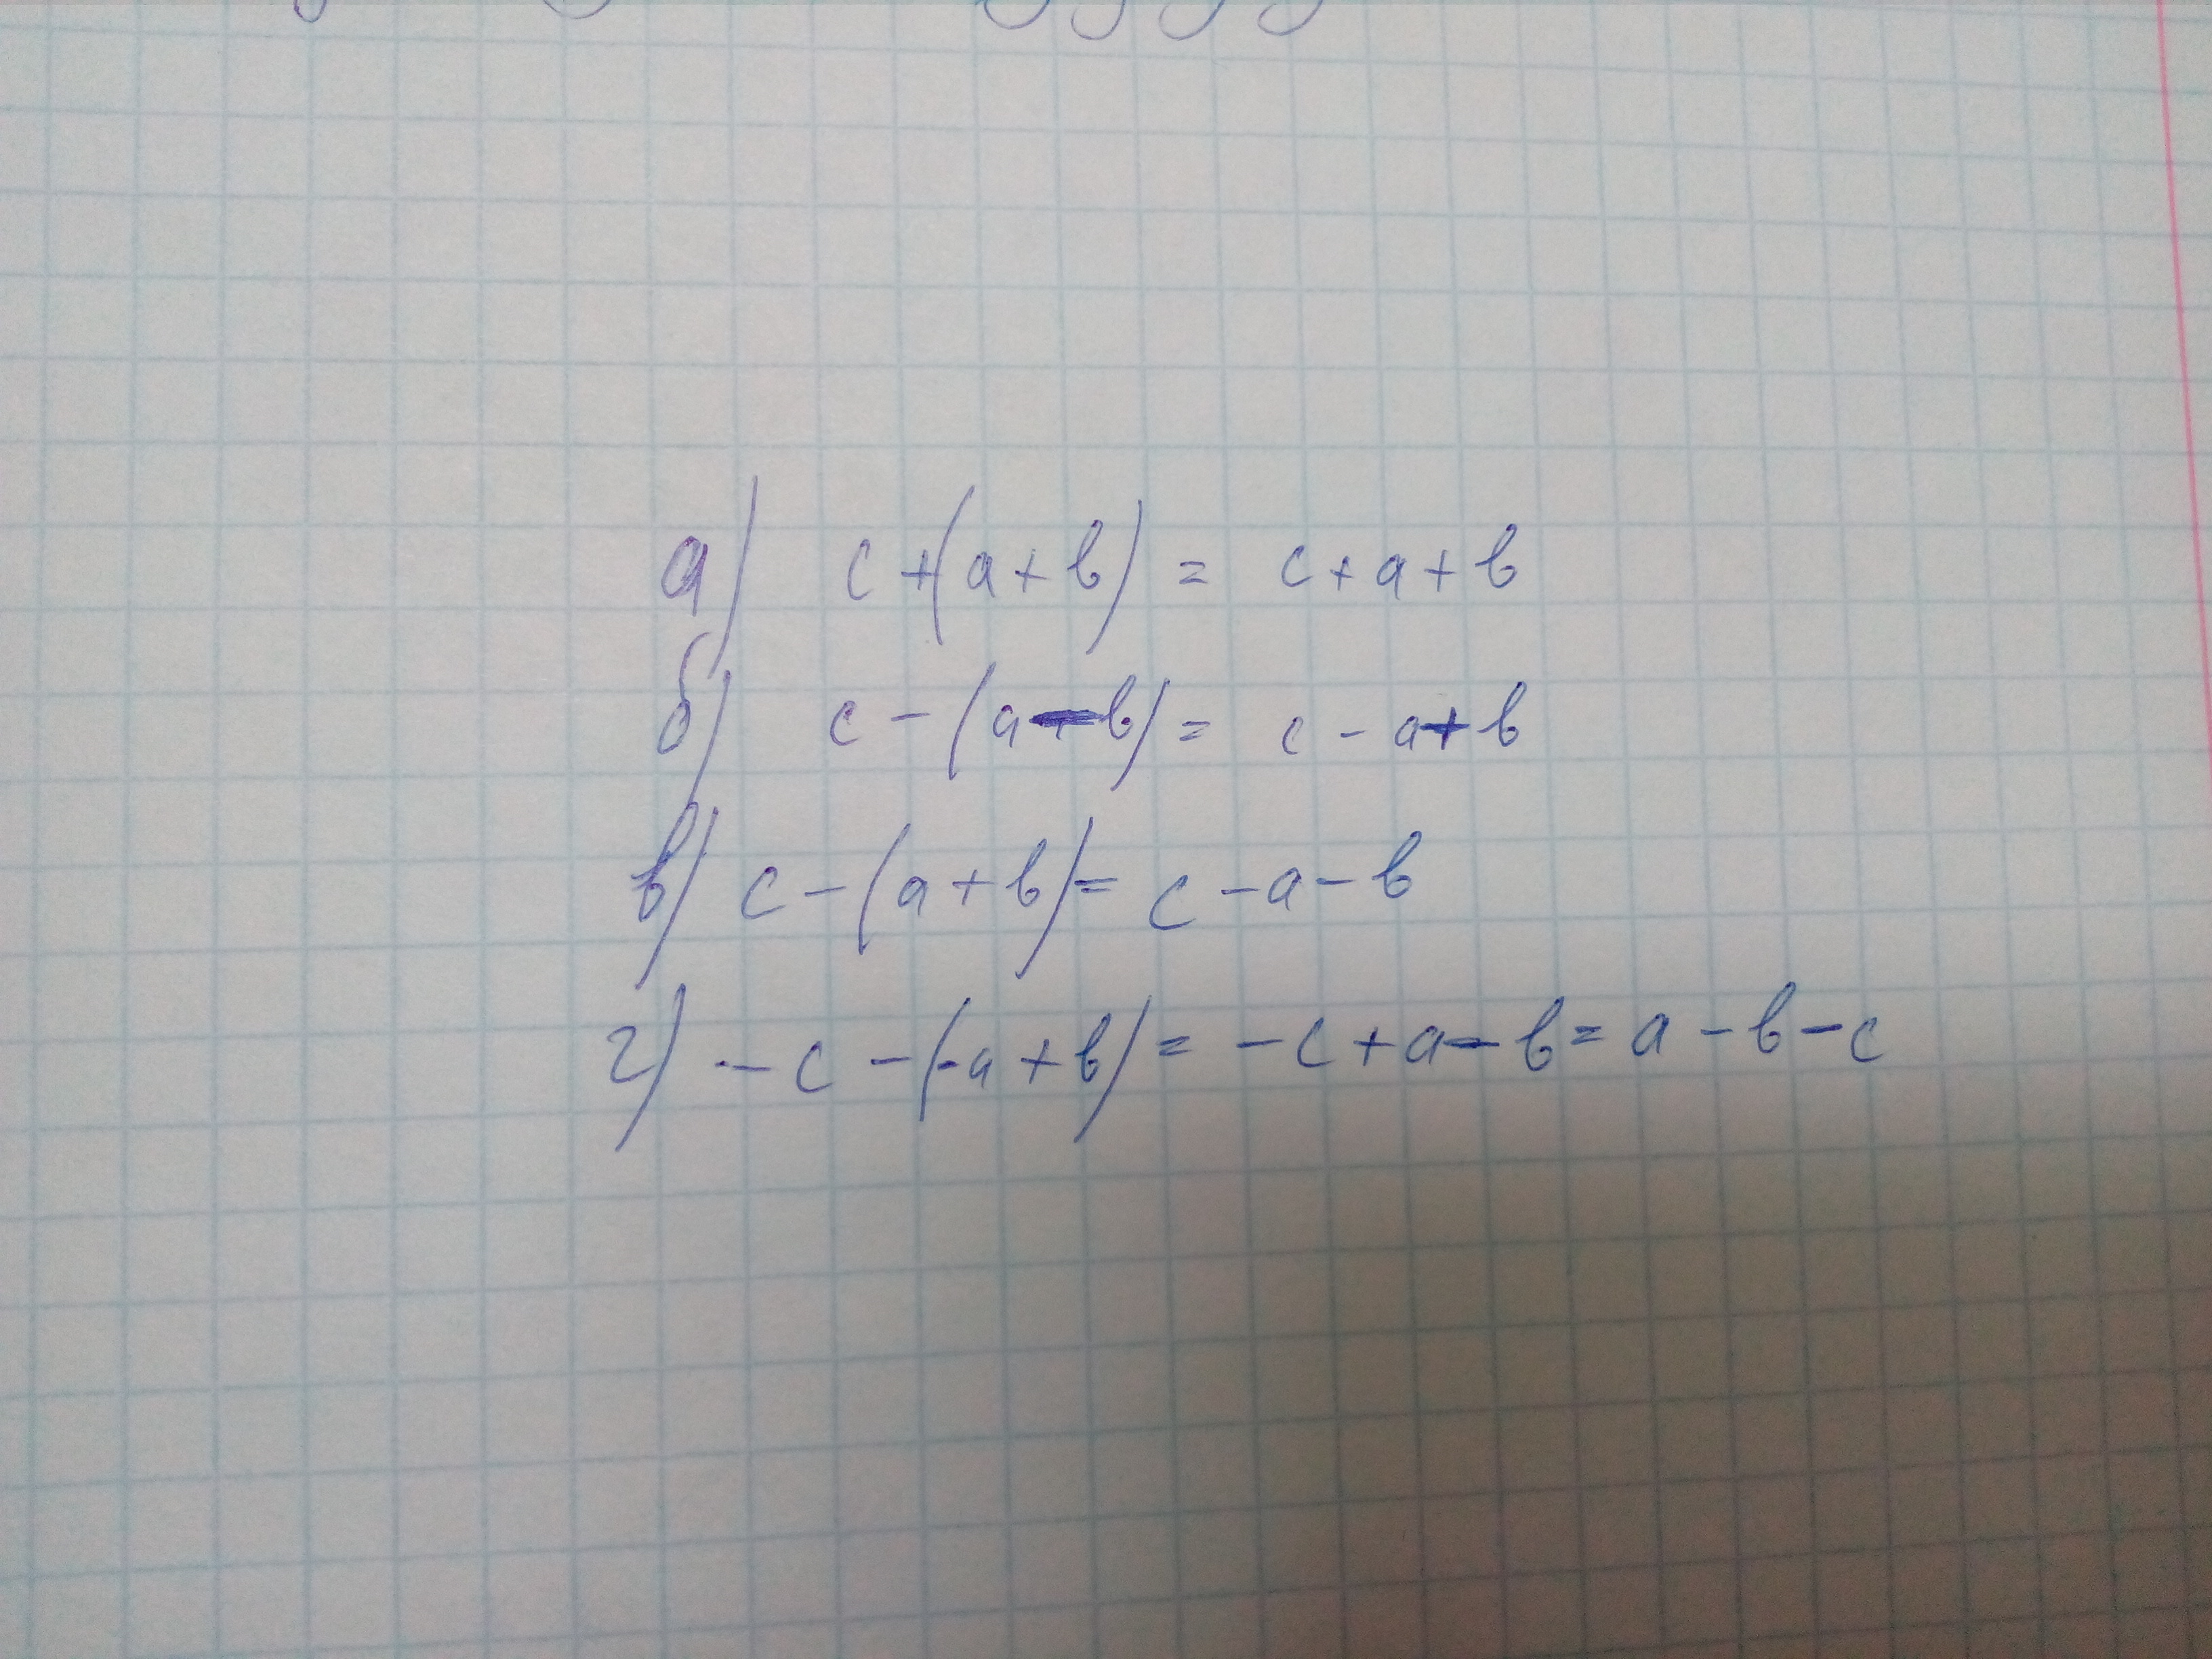 а) c+(a+b) = c+a+b
б) c-(a-b) = c-a+b
в) c-(a+b) = c-a-b
г) -c-(-a+b) = -c+a-b = a-b-c